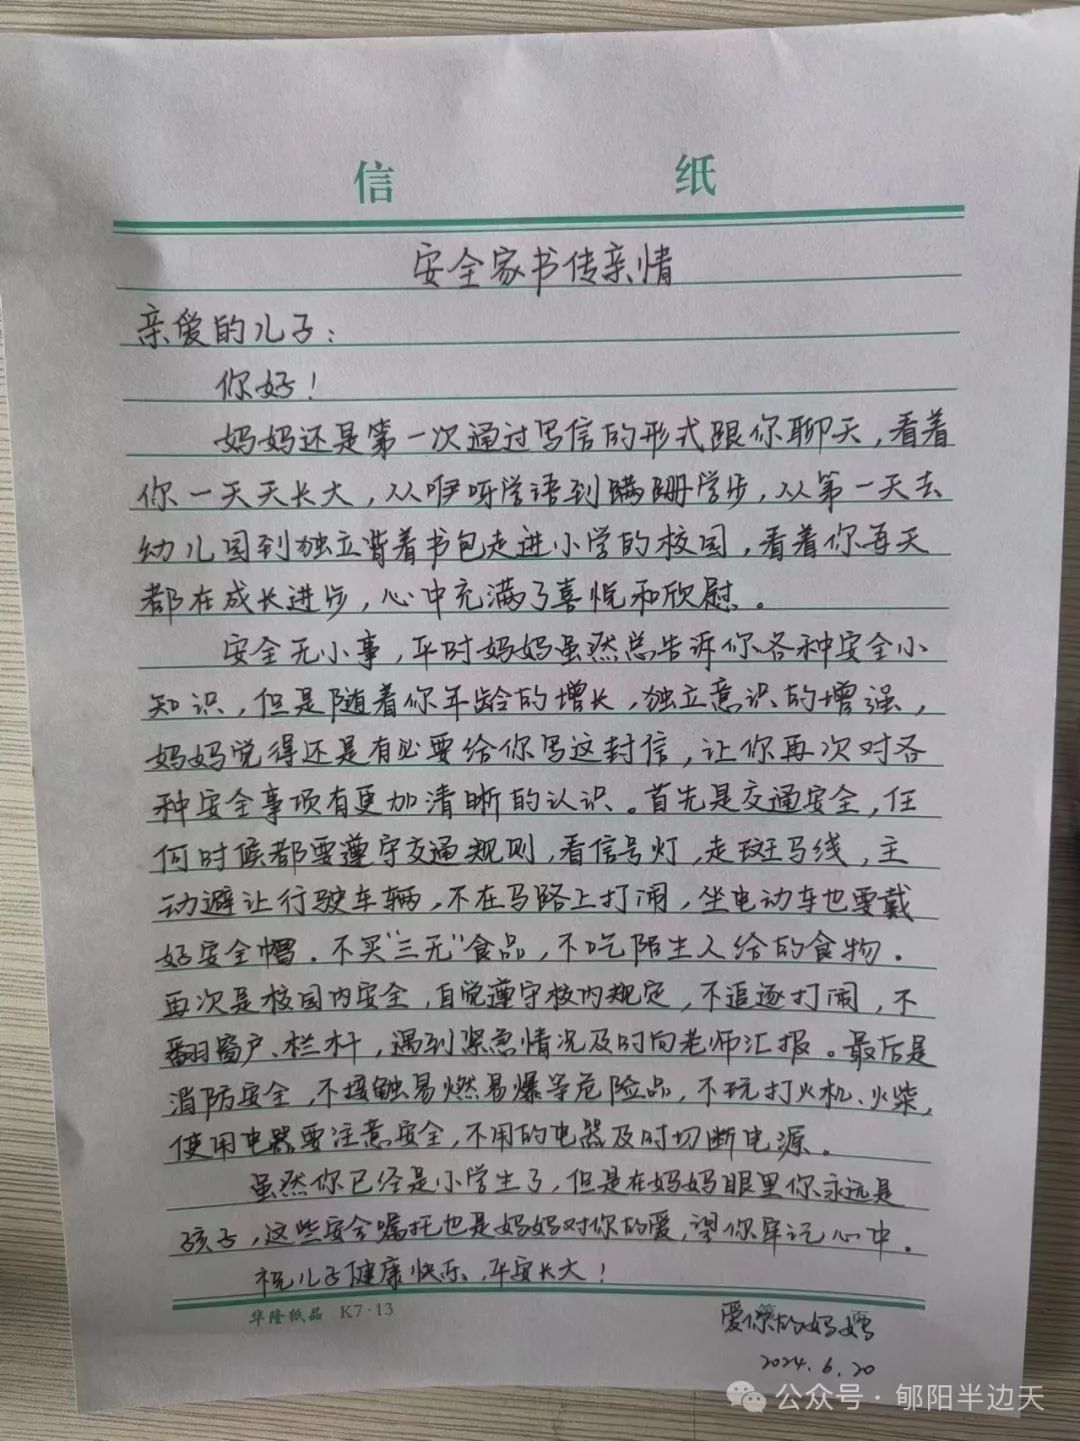 信 纸
安全家书传亲情
亲爱的儿子：
你好！
妈妈还是第一次通过写信的形式跟你聊天，看着
你一天天长大，从咿呀学语到蹒跚学步，从第一天去
幼儿园到独立背着书包走进小学的校园，看着你每天
都在成长进步，心中充满了喜悦和欣慰。
安全无小事，平时妈妈虽然总告诉你各种安全小
知识，但是随着你年龄的增长，独立意识的增强，
妈妈觉得还是有必要给你写这封信，让你再次对各
种安全事项有更加清晰的认识。首先是交通安全，任
何时候都要遵守交通规则，看信号灯，走斑马线，主
动避让行驶车辆，不在马路上打闹，坐电动车也要戴
好安全帽。不买“三无”食品，不吃陌生人给的食物。
再次是校园内安全，自觉遵守校内规定，不追逐打闹，不
翻窗户、栏杆，遇到紧急情况及时向老师汇报。最后是
消防安全，不接触易燃易爆等危险品，不玩打火机、火柴，
使用电器要注意安全，不用的电器及时切断电源。
虽然你已经是小学生了，但是在妈妈眼里你永远是
孩子，这些安全嘱托也是妈妈对你的爱，望你牢记心中。
祝儿子健康快乐、平安长大！
华隆纸品 K7·13
爱你的妈妈
2024.6.20
公众号·郧阳半边天